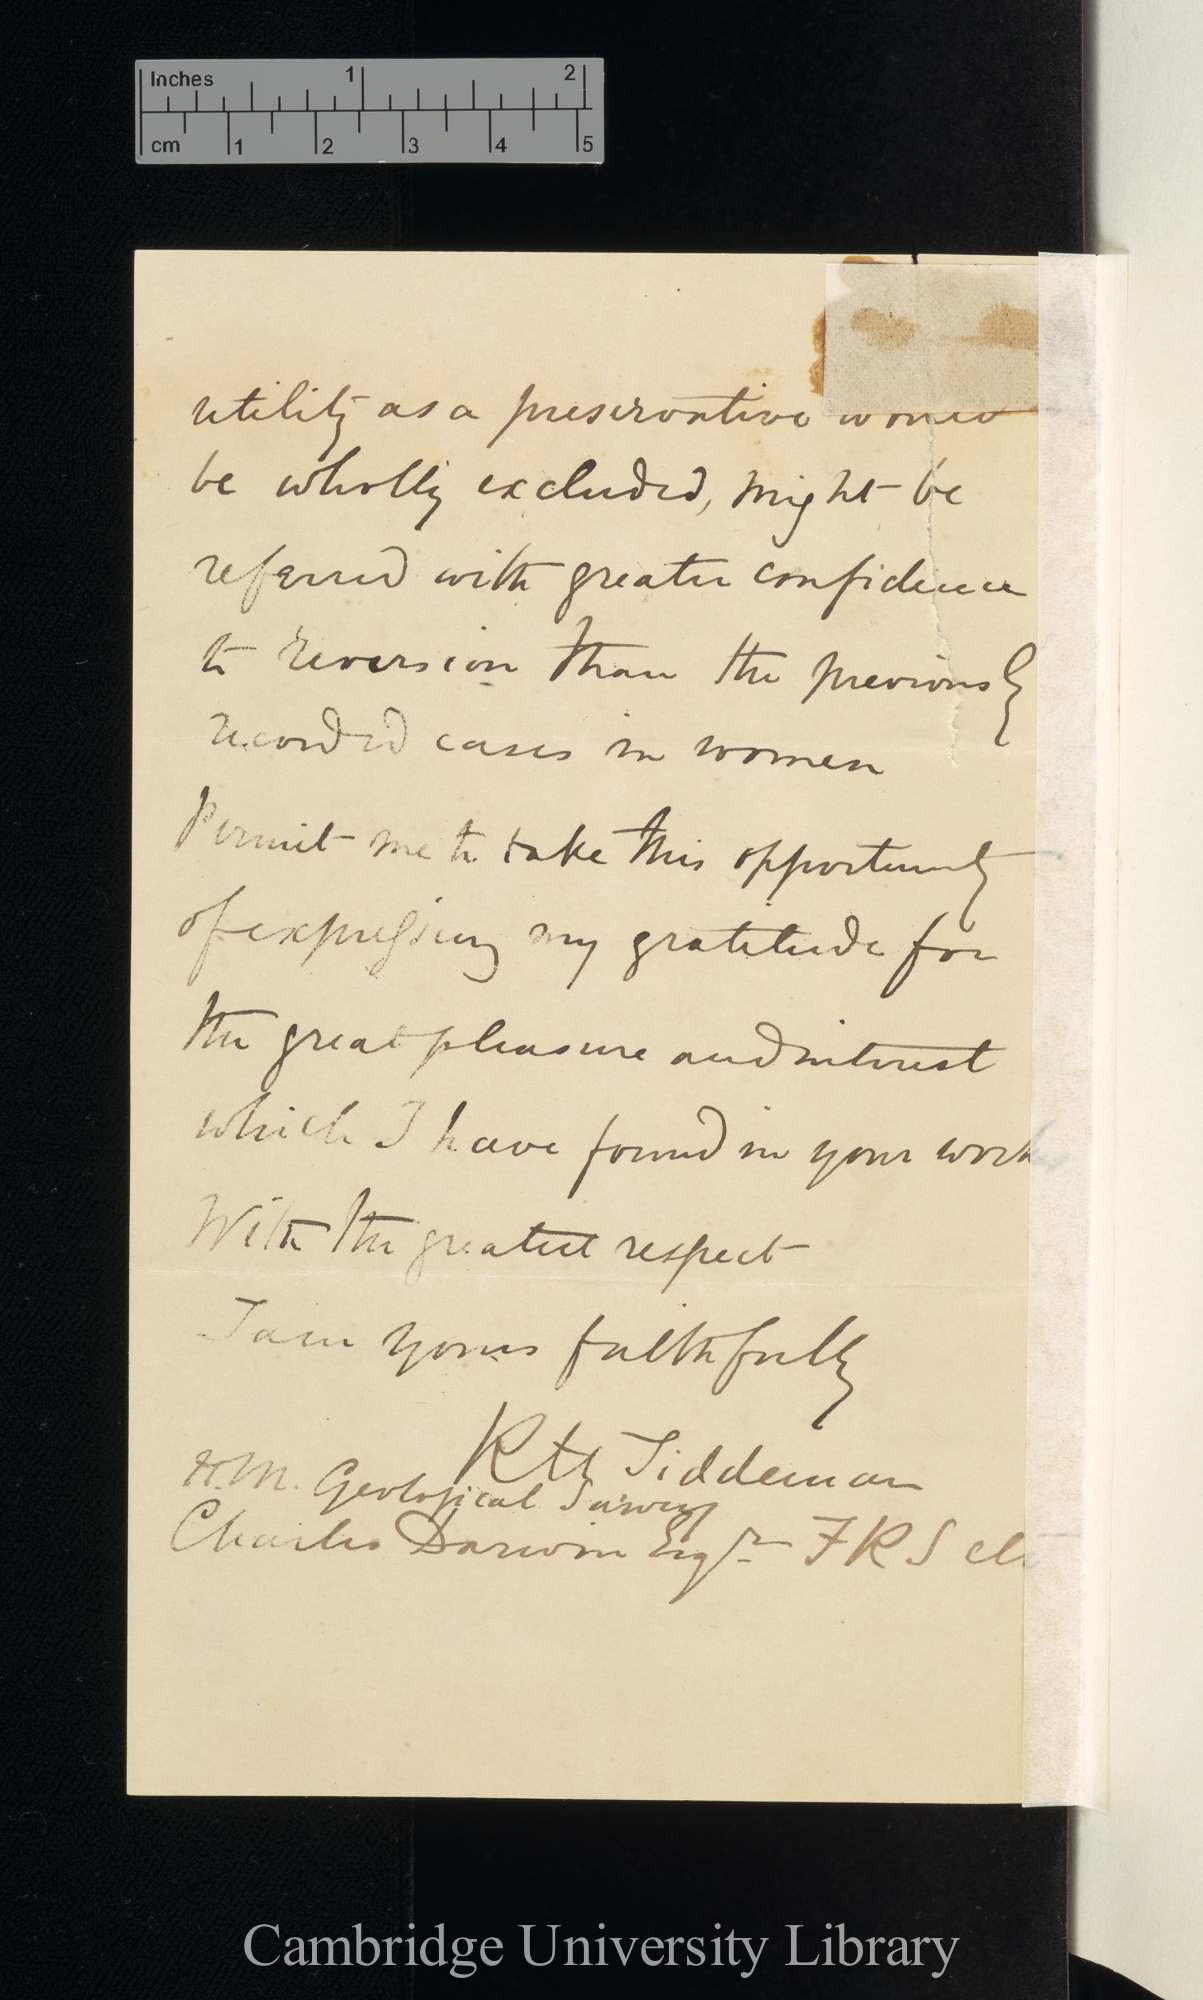 Inches 1 2
cm 1 2 3 4 5
utility as a preservative would
be wholly excluded, might be
referred with greater confidence
to reversion than the previously
recorded cases in women
Permit me to take this opportunity
of expressing my gratitude for
the great pleasure and interest
which I have found in your work
With the greatest respect
I am yours faithfully
R H Tiddeman
H.M. Geological Survey
Charles Darwin Esqr FRS etc
Cambridge University Library